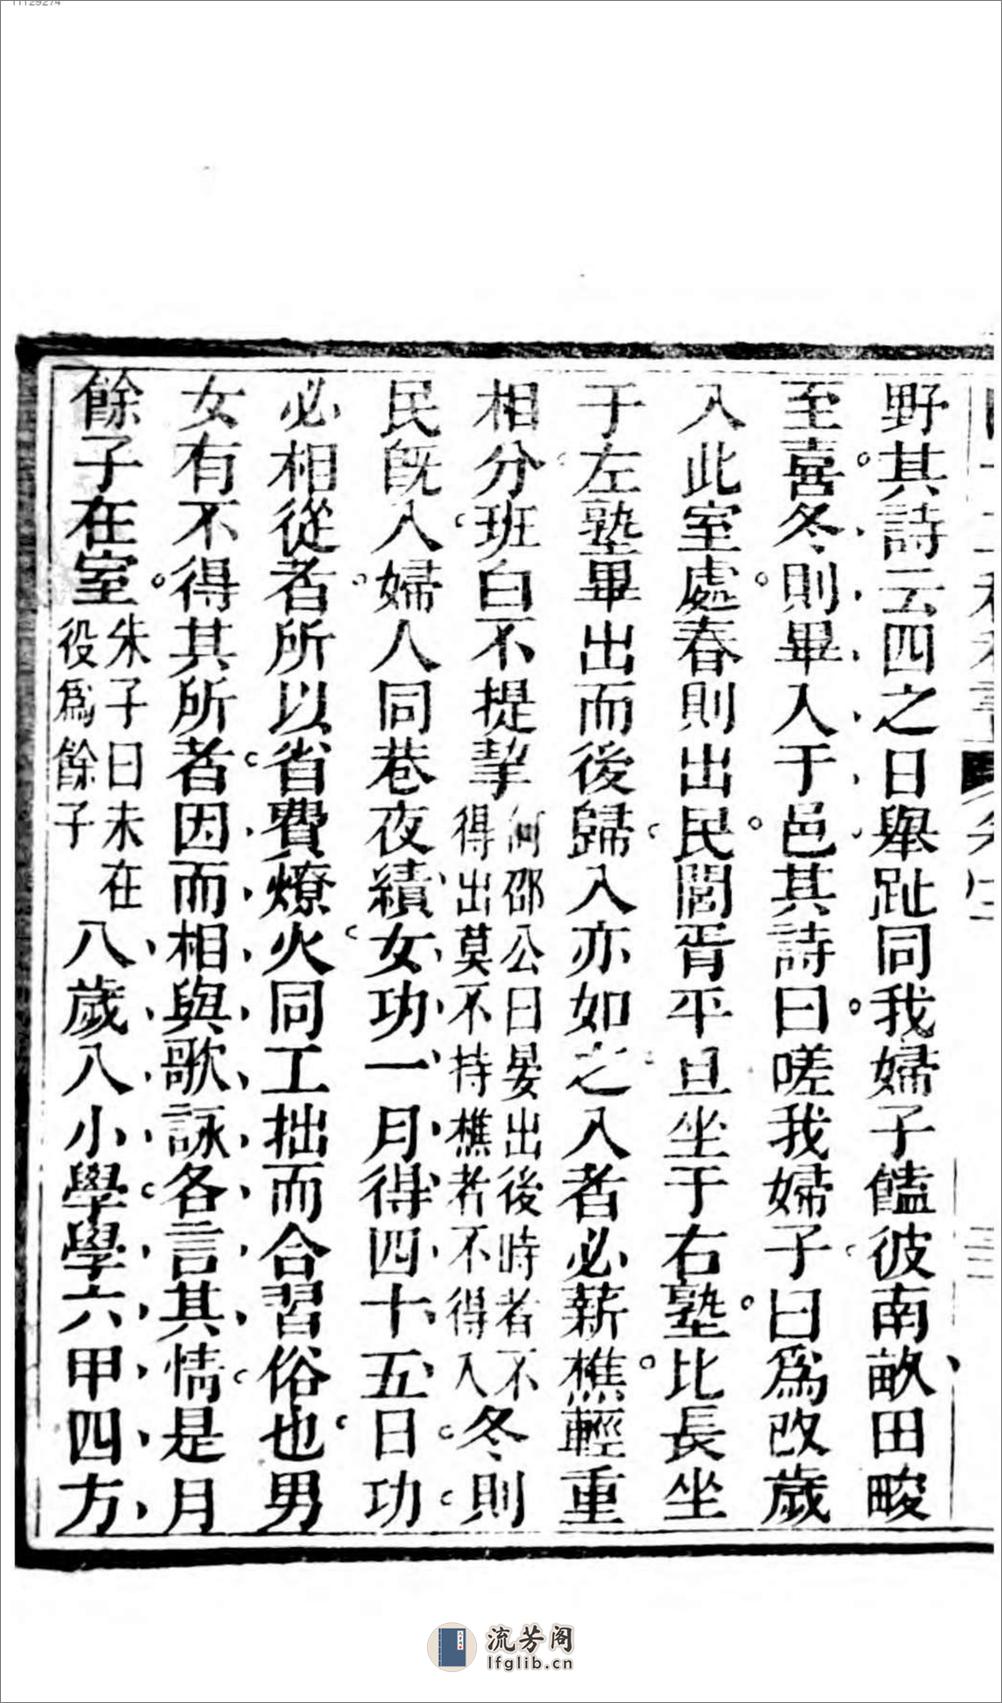 野其詩云四之日舉趾同我婦子饁彼南畝田畯
至喜冬則畢入于邑其詩曰嗟我婦子曰爲改歲
入此室處春則出民閭胥平旦坐于右塾比長坐
于左塾畢出而後歸入亦如之入者必薪樵輕重
相分班白不提挈何邵公曰晏出後時者不得出莫不持樵者不得入冬則
民旣入婦人同巷夜績女功一月得四十五日功
必相從者所以省費燎火同工拙而合習俗也男
女有不得其所者因而相與歌詠各言其情是月
餘子在室朱子曰未在役爲餘子八歲入小學學六甲四方
流芳阁
lfglib.cn